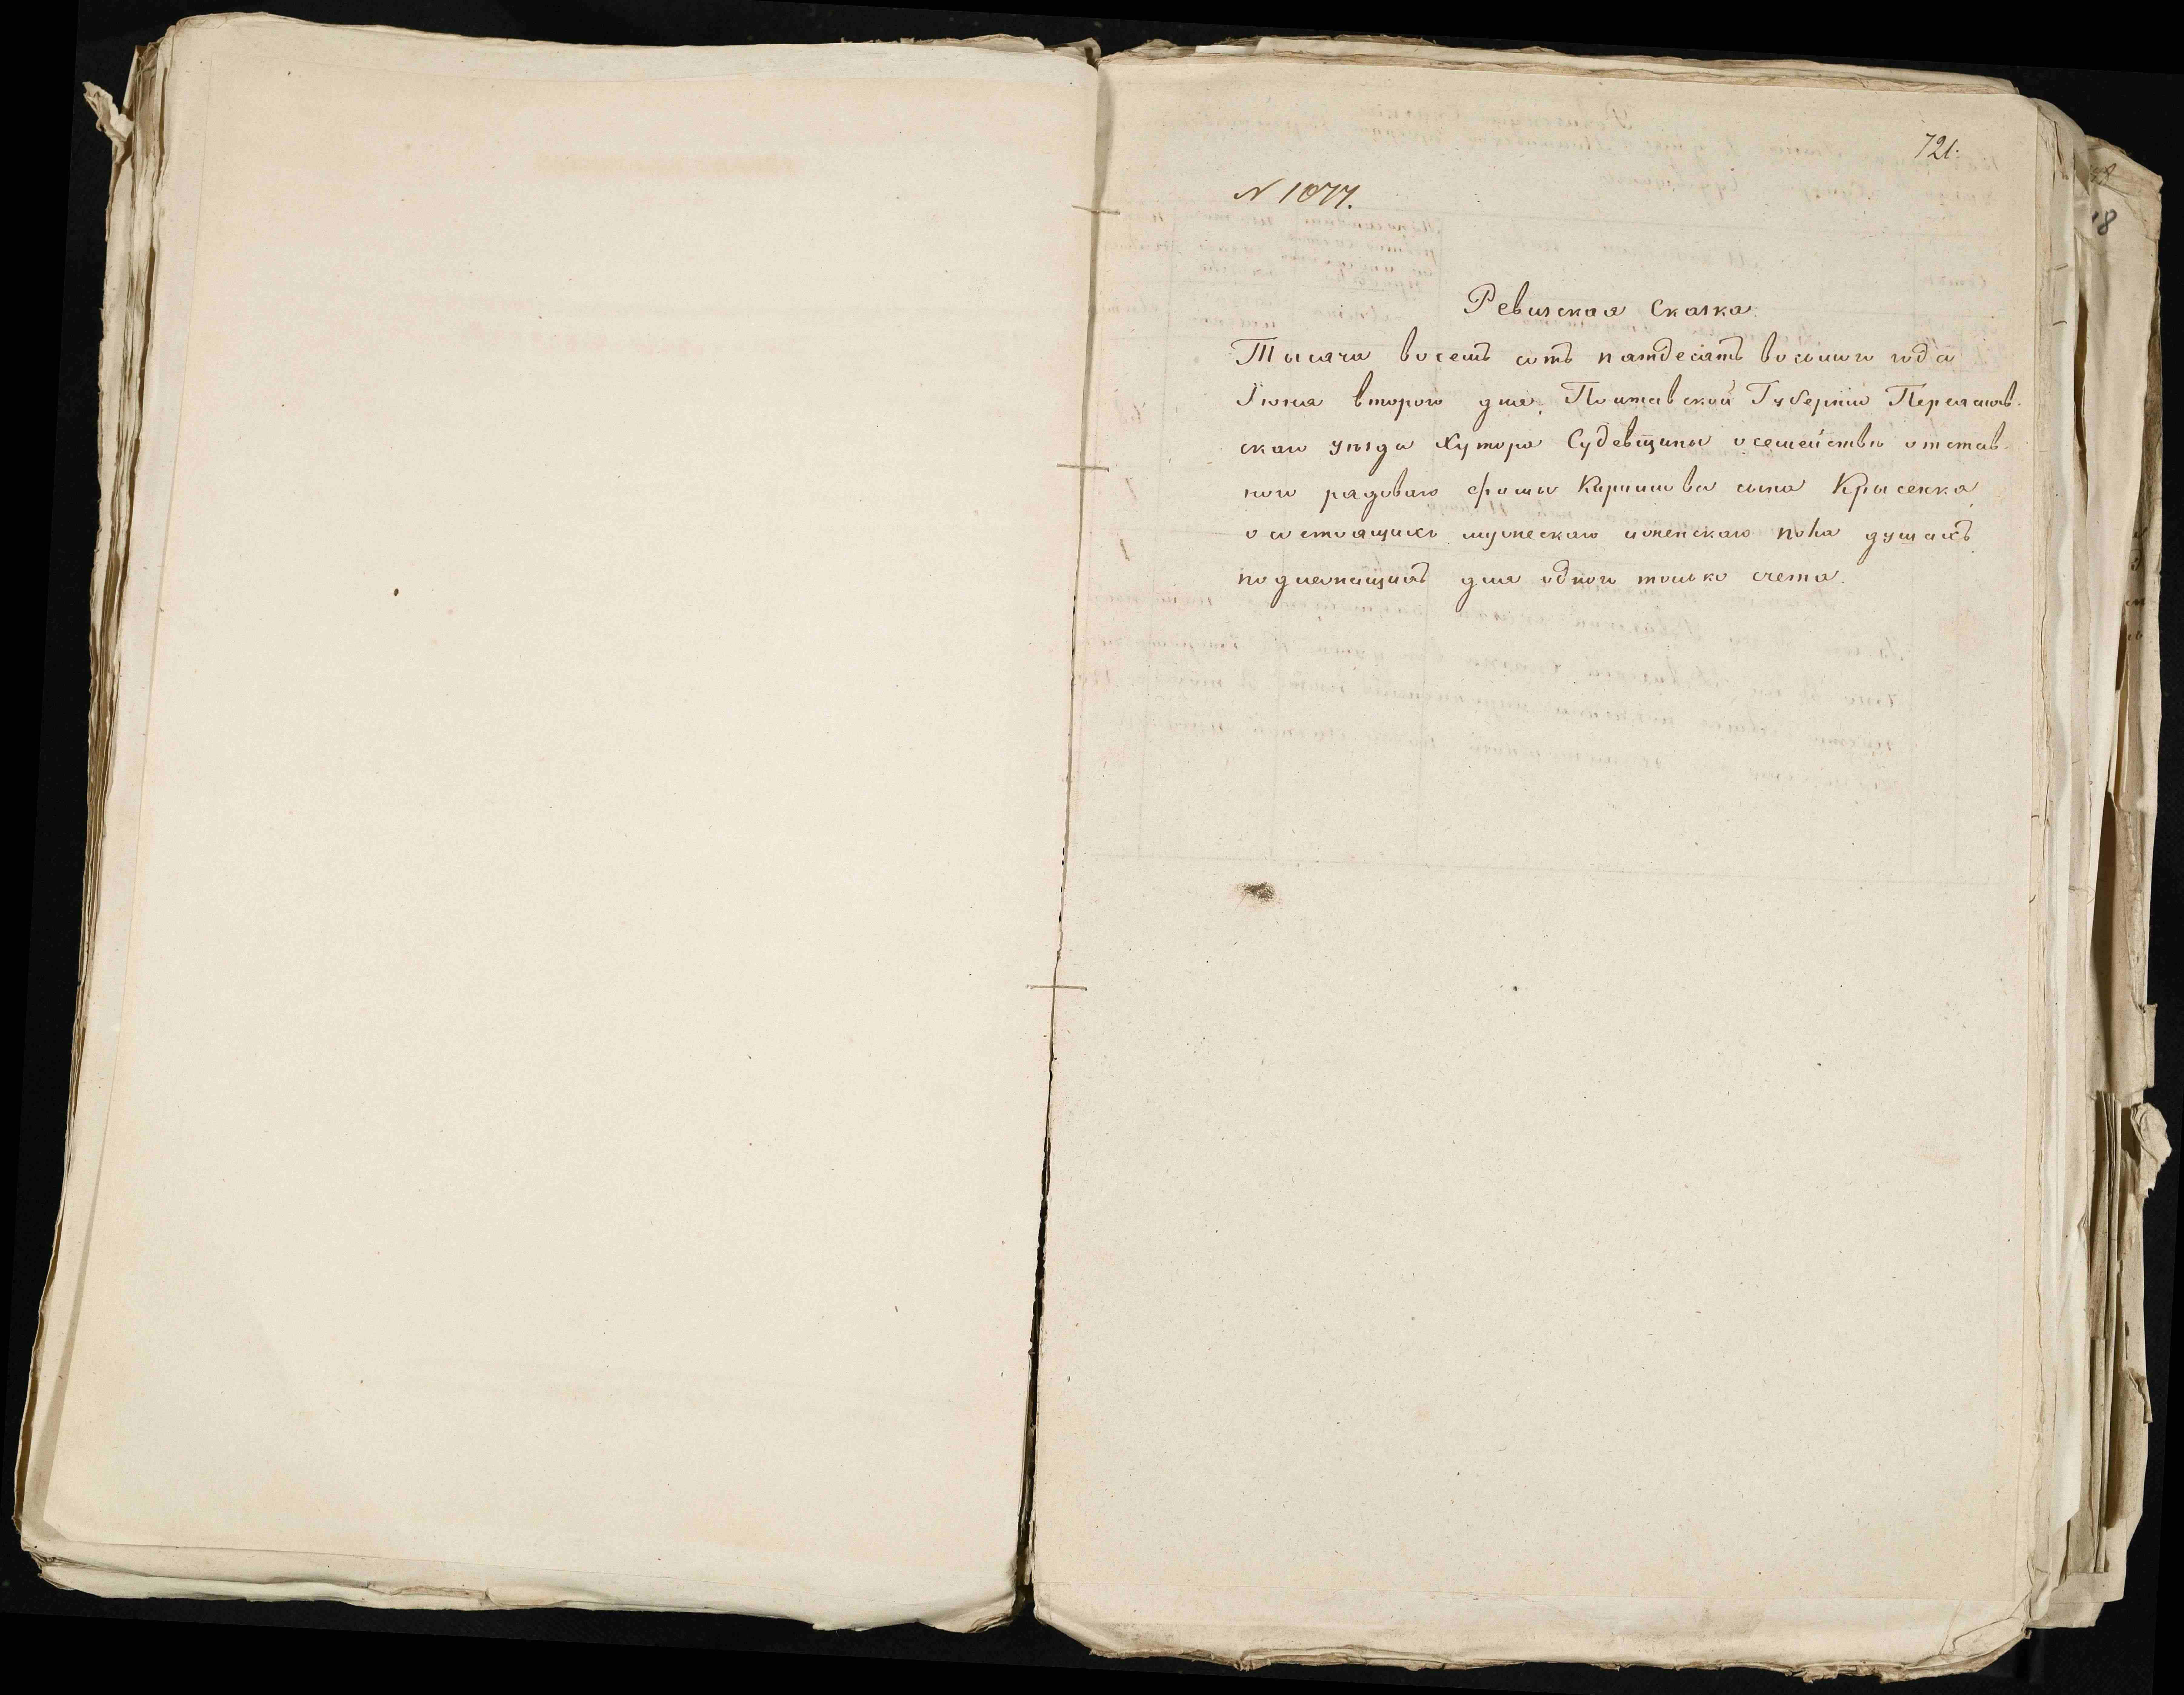 721.
N 1077.
Ревизская Сказка.
Тысяча восемь сотъ пятдесятъ восьмого года
Іюня второго дня, Полтавской Губерніи Переяслав-
скаго уѣзда Хутора Судевщины осемействѣ отстав-
ного рядоваго Фомы Кирилова сына Крысенка
о состоящихъ мужескаго иженскаго пола душахъ
подлежащихъ для одного только счета.
18